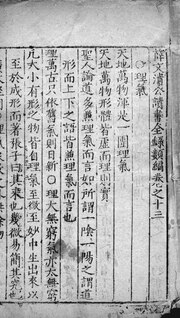 薛文清公讀書全錄類編卷之十三
○理氣
天地萬物渾是一團理氣
天地萬物形體皆虛而理則實
聖人論道多兼理氣而言如所謂一陰一陽之謂道
形而上下之語皆兼理氣而言也
理萬古只依舊氣則日新○理大無窮氣亦大無窮
凡大小有形之物皆自理氣至微至妙中生出來以
至於成形而著張子曰其來也幾微易簡其究也